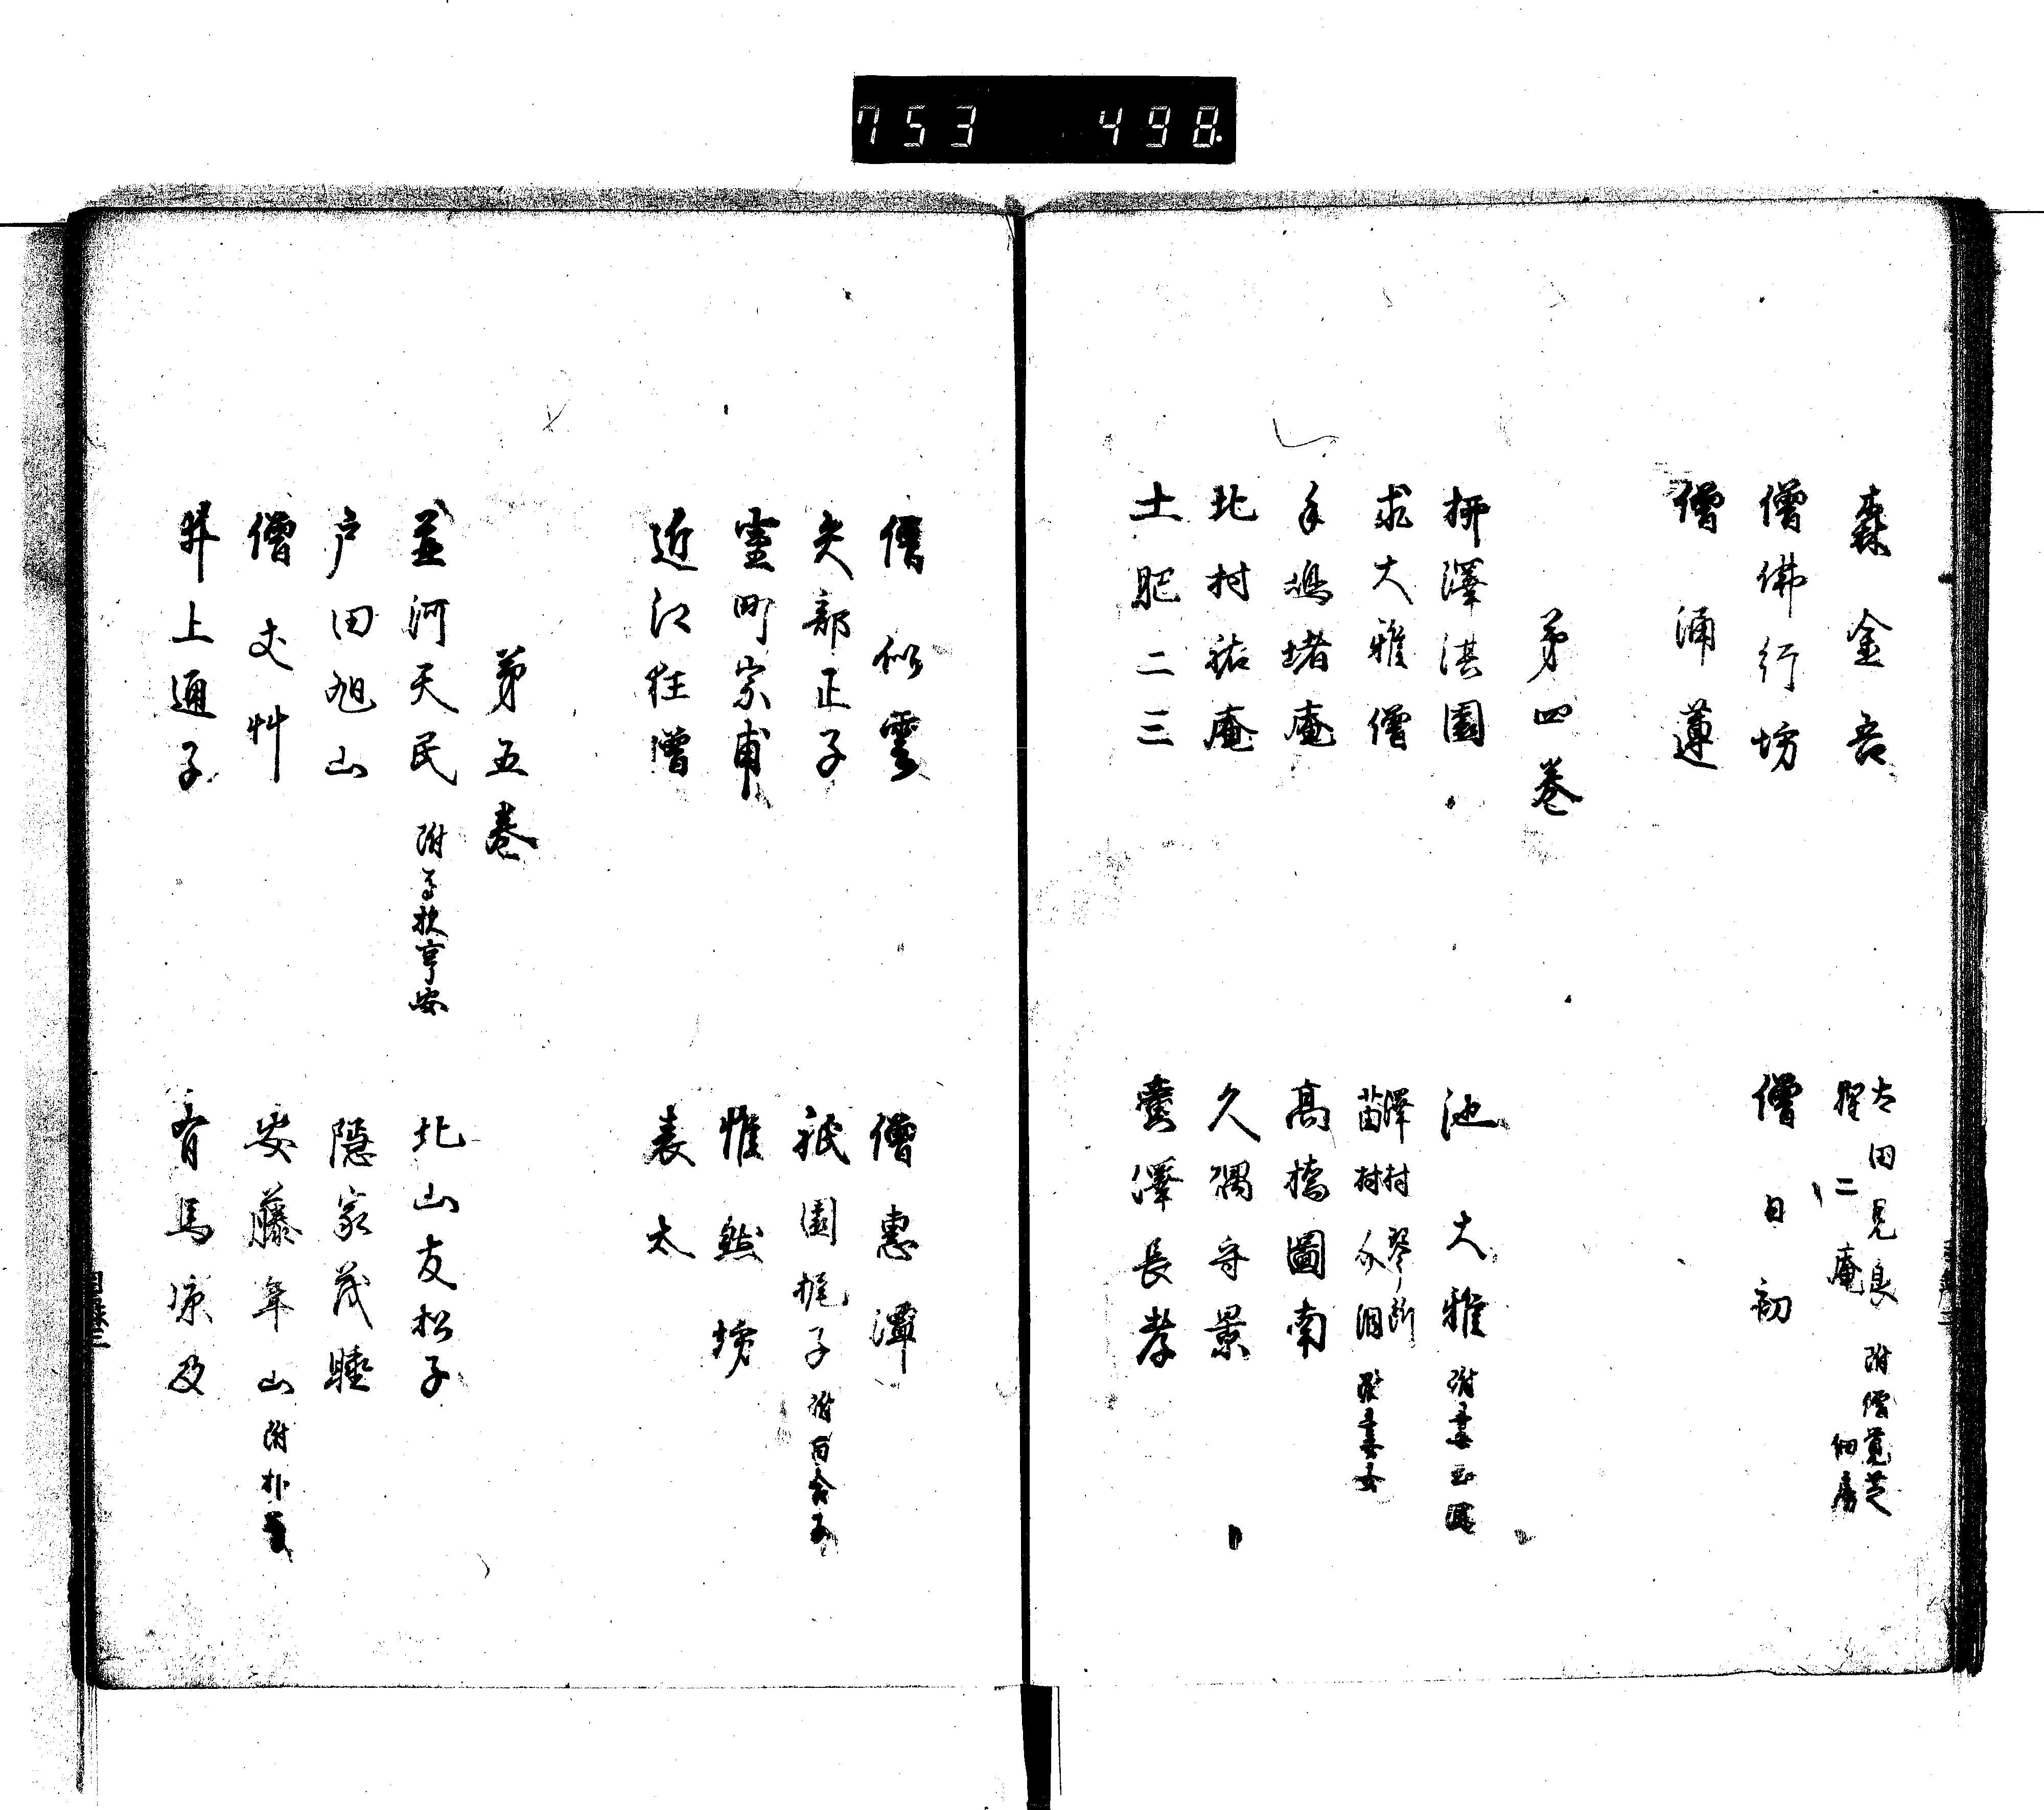 753 498
森金吾
太田見良 附僧覚芝
二庵
僧佛行坊
僧日初
僧涌蓮
第四巻
柳澤淇園
池大雅 附妻玉瀾
求大雅僧
澤村琴所
苗村介洞 附妻女
手嶋堵庵
高橋圖南
北村祐庵
久隅守景
土肥二三
廣澤長孝
僧似雲
僧惠潭
矢部正子
祇園梶子 附百合子
室町宗甫
惟然坊
近江狂僧
表太
第五巻
並河天民 附 亨安
北山友松子
戸田旭山
隠家茂睡
僧丈艸
安藤年山 附朴翁
井上通子
有馬凉及